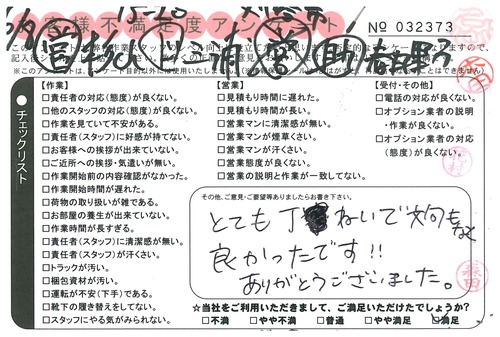 お客様不満足度アンケート
No 032373
※このアンケートは、アンケート目的以外には使用いたしません。
チェックリスト
【作業】
□責任者の対応(態度)が良くない。
□他のスタッフの対応(態度)が良くない。
□作業を見ていて不安がある。
□責任者(スタッフ)に好感が持てない。
□お客様への挨拶が出来ていない。
□ご近所への挨拶・気遣いが無い。
□作業開始前の内容確認がなかった。
□作業開始時間が遅れた。
□荷物の取り扱いが雑である。
□お部屋の養生が出来ていない。
□作業時間が長すぎる。
□責任者(スタッフ)に清潔感が無い。
□責任者(スタッフ)が汗くさい。
□トラックが汚い。
□梱包資材が汚い。
□運転が不安(下手)である。
□靴下の履き替えをしてない。
□スタッフにやる気がみられない。
【営業】
□見積もり時間に遅れた。
□見積もり時間が長い。
□営業マンに清潔感が無い。
□営業マンが煙草くさい。
□営業マンが汗くさい。
□営業態度が良くない。
□営業の説明と作業が一致してない。
【受付・その他】
□電話の対応が良くない。
□オプション業者の説明
・作業が良くない。
□オプション業者の対応
(態度)が良くない。
その他、ご意見・ご要望等ありましたらお書き下さい。
とても丁ねいで
良かったです!!
ありがとうございました。
☆当社をご利用いただきまして、ご満足いただけたでしょうか?
□不満 □やや不満 □普通 □やや満足 □満足